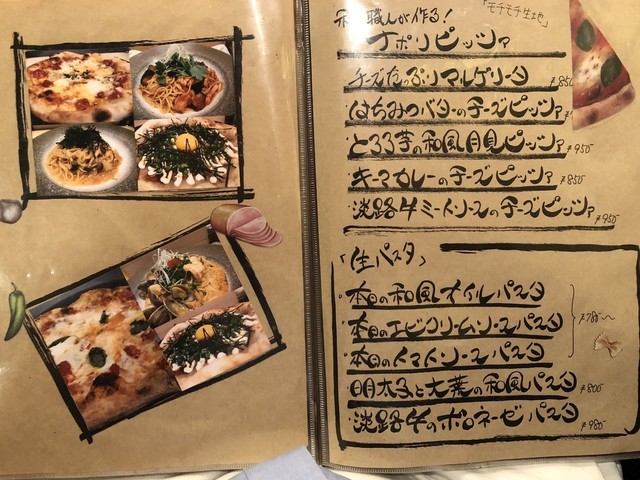 職人が作る!
「モチモチ生地」
ナポリピッツァ
チーズたっぷりマルゲリータ ¥850
はちみつバターのチーズピッツァ
とろろ芋の和風月見ピッツァ ¥950
キーマカレーのチーズピッツァ ¥850
淡路牛ミートソースのチーズピッツァ ¥950
「生パスタ」
本日の和風オイルパスタ
本日のエビクリームソースパスタ ¥780~
本日のトマトソースパスタ
明太子と大葉の和風パスタ ¥800
淡路牛のボロネーゼパスタ ¥980